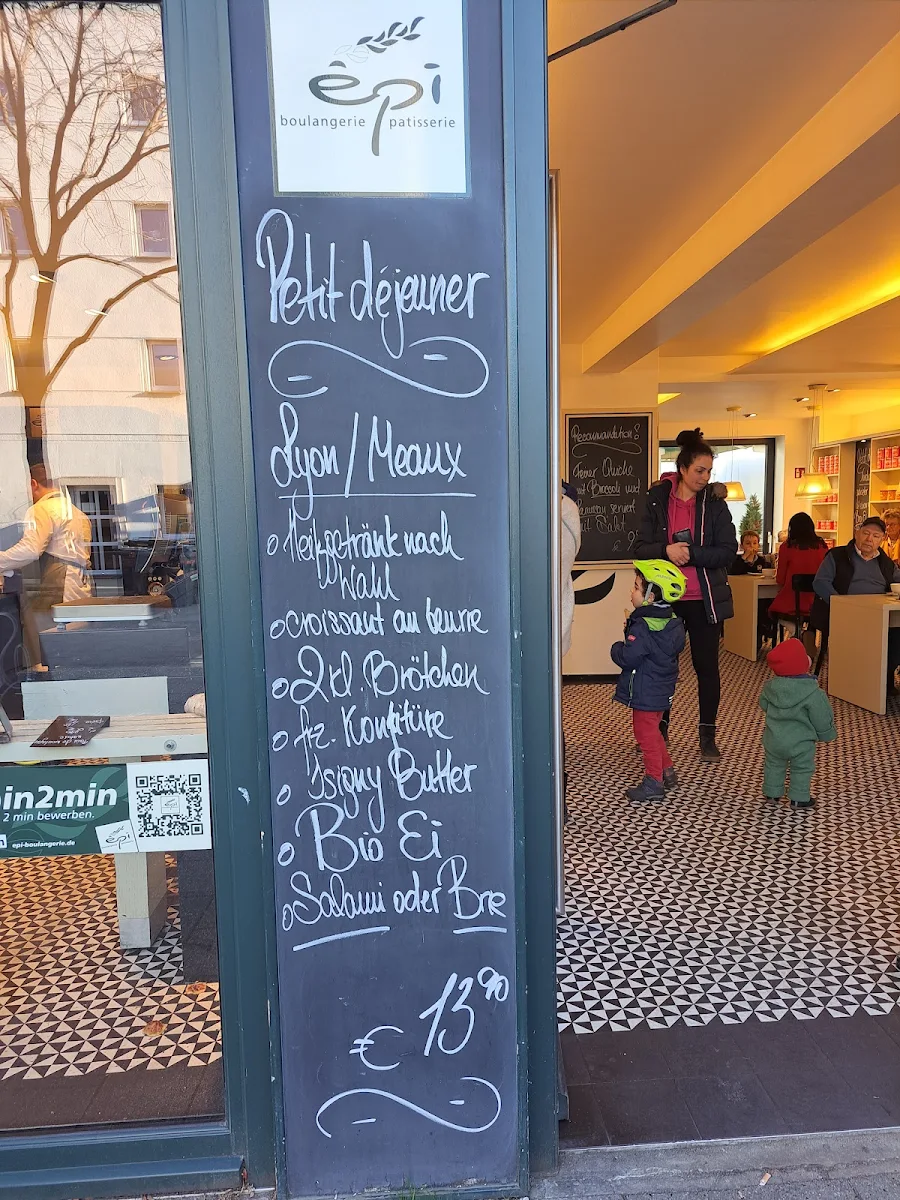 épi
boulangerie patisserie
Petit déjeuner
Lyon / Meaux
o Heißgetränk nach
Wahl
o croissant au beurre
o 2 kl. Brötchen
o frz. Konfitüre
o Isigny Butter
o Bio Ei
o Salami oder Brie
€ 13,90
in2min
2 min bewerben.
epi-boulangerie.de
épi
Feiner Quiche
mit Broccoli und
serviert
mit Salat